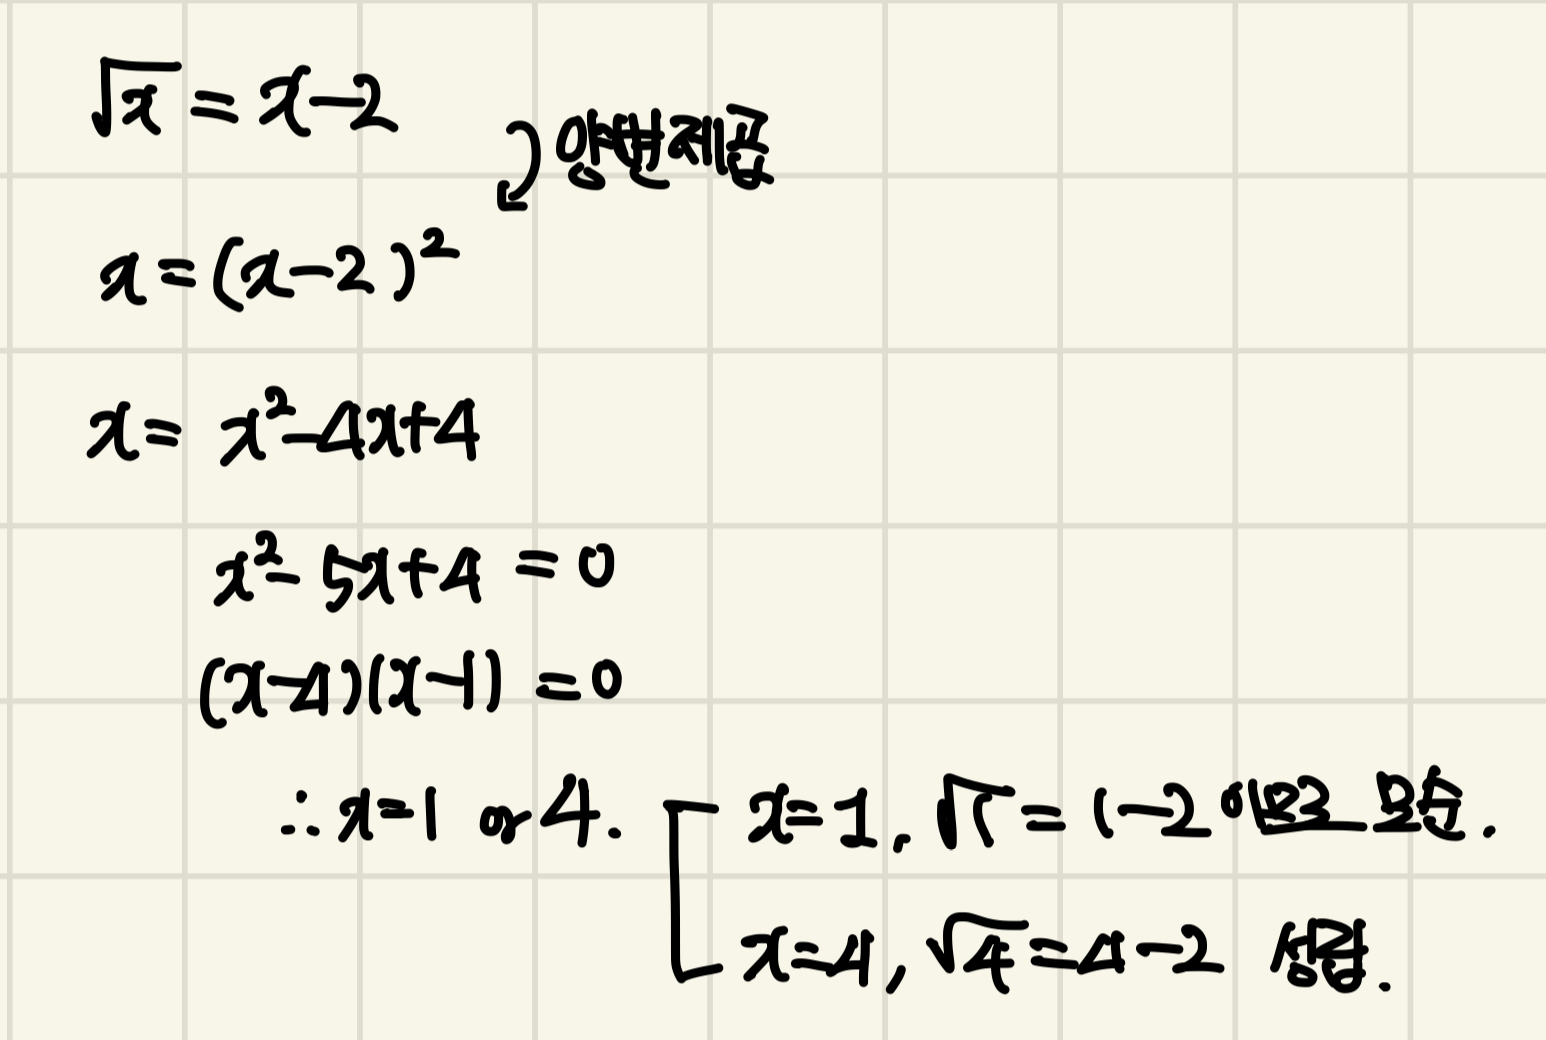 √x = x-2
양변제곱
x = (x-2)²
x = x²-4x+4
x²-5x+4 = 0
(x-4)(x-1) = 0
∴ x=1 or 4. x=1, √1 = 1-2 이므로 모순.
x=4, √4 = 4-2 성립.